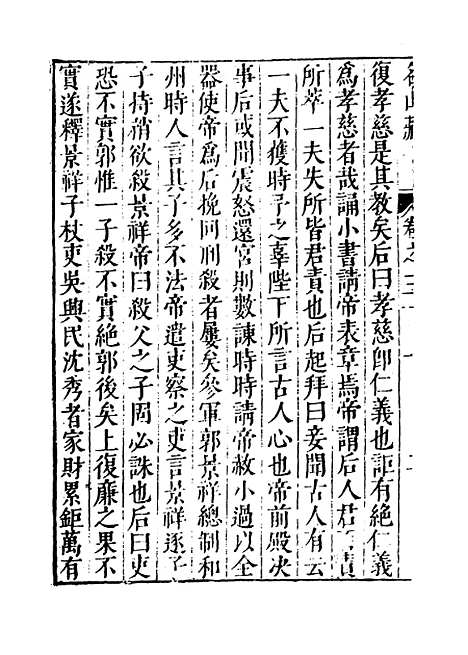 卷之三十
復孝慈是其教矣后曰孝慈卽仁義也詎有絶仁義
爲孝慈者哉誦小書請帝表章焉帝謂后人君
所萃一夫失所皆君責也后起拜曰妾聞古人有云
一夫不獲時予之辜陛下所言古人心也帝前殿决
事后或聞震怒還宫則數諫時時請帝赦小過以全
噐使帝爲后挽回刑殺者屢矣叅軍郭景祥總制和
州時人言其子多不法帝遣吏察之吏言景祥逐子
子持矟欲殺景祥帝曰殺父之子固必誅也后曰吏
恐不實郭惟一子殺不實絶郭後矣上復廉之果不
實遂釋景祥子杖吏吳興民沈秀者家財累鉅萬有